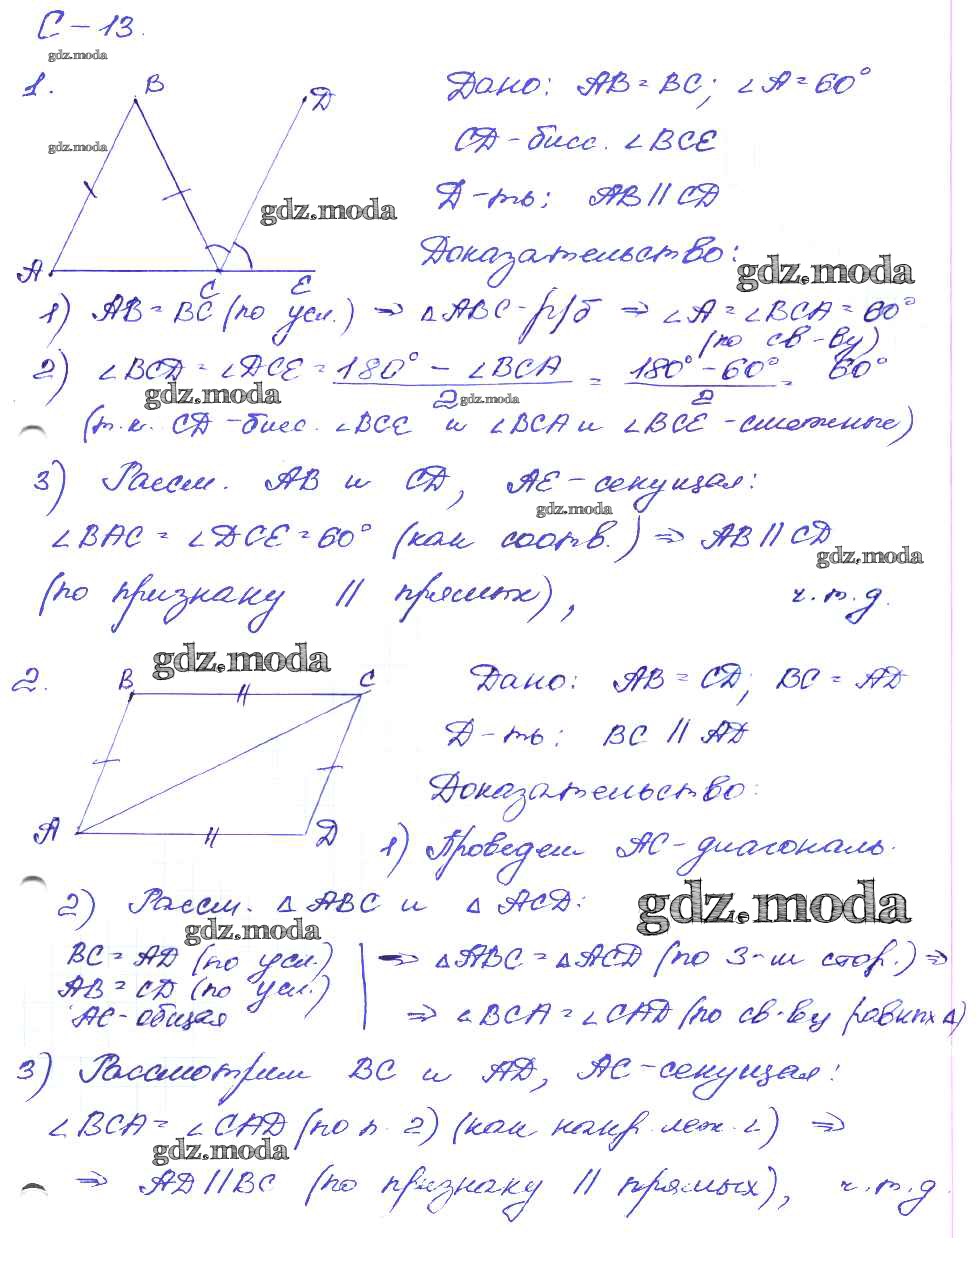 С-13.
gdz.moda
1.
B
D
gdz.moda
gdz.moda
A
C
E
Дано: AB = BC; ∠A = 60°
CD - бисс. ∠BCE
Д-ть: AB || CD
Доказательство:
gdz.moda
1) AB = BC (по усл.) ⇒ △ABC - р/б ⇒ ∠A = ∠BCA = 60°
(по св-ву)
2) ∠BCD = ∠DCE = (180° - ∠BCA)/2 = (180° - 60°)/2 = 60°
gdz.moda
gdz.moda
(т.к. CD - бисс. ∠BCE и ∠BCA и ∠BCE - смежные)
3) Рассм. AB и CD, AE - секущая:
gdz.moda
∠BAC = ∠DCE = 60° (как соотв.) ⇒ AB || CD
gdz.moda
(по признаку || прямых), ч.т.д.
gdz.moda
2.
B
C
A
D
Дано: AB = CD; BC = AD
Д-ть: BC || AD
Доказательство:
1) Проведем AC - диагональ.
2) Рассм. △ABC и △ACD:
gdz.moda
gdz.moda
BC = AD (по усл.)
AB = CD (по усл.)
AC - общая
⇒ △ABC = △ACD (по 3-м стор.) ⇒
⇒ ∠BCA = ∠CAD (по св-ву равных △)
3) Рассмотрим BC и AD, AC - секущая:
∠BCA = ∠CAD (по п. 2) (как накр. леж. ∠) ⇒
gdz.moda
⇒ AD || BC (по признаку || прямых), ч.т.д.